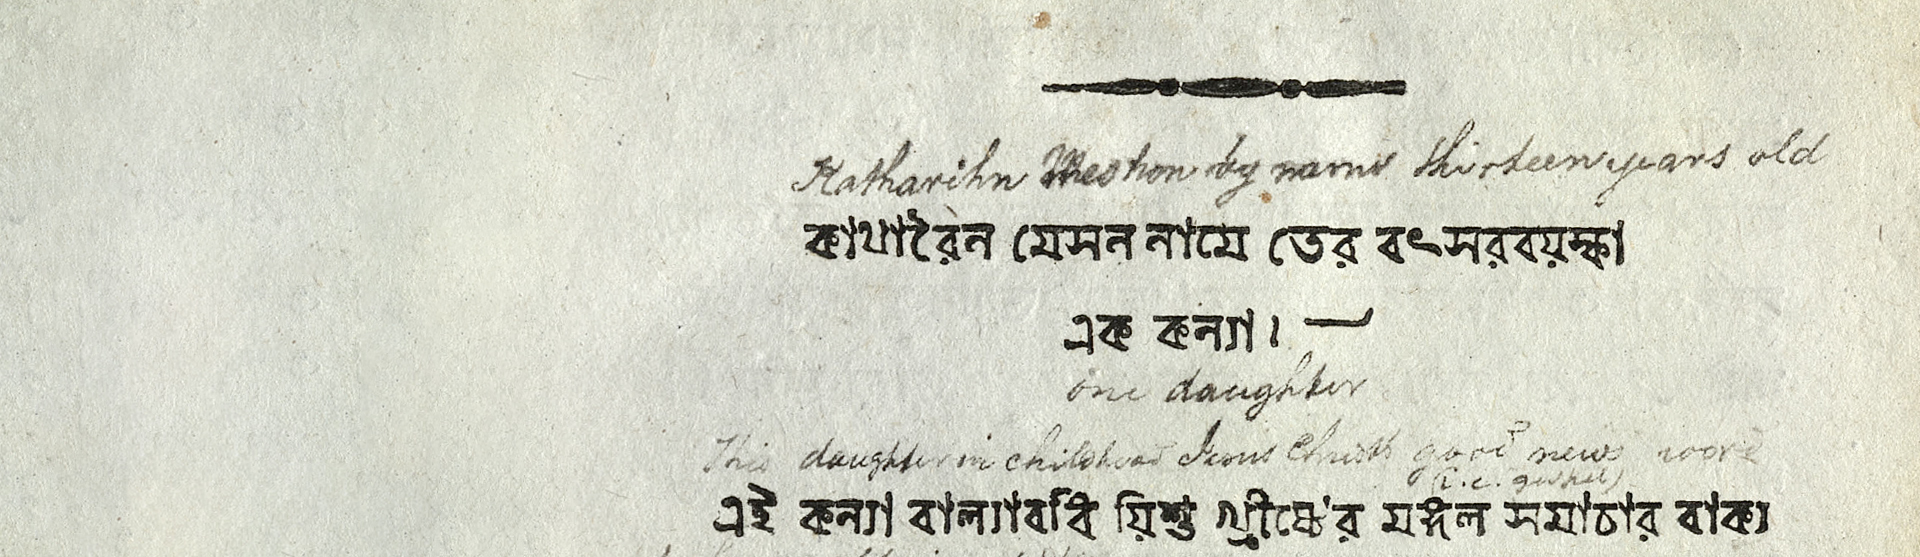 Katharihn Meshon by name thirteen years old
কাথারৈন মেসন নামে তের বৎসরবয়স্কা
এক কন্যা। —
one daughter
This daughter in childhood Jesus Christs good news word
(i.e. gospel)
এই কন্যা বাল্যাবধি য়িশু খ্রীষ্টের মঙ্গল সমাচার বাক্য